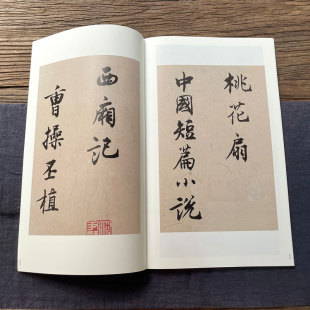 桃花扇
中國短篇小説
西廂記
曹操丕植